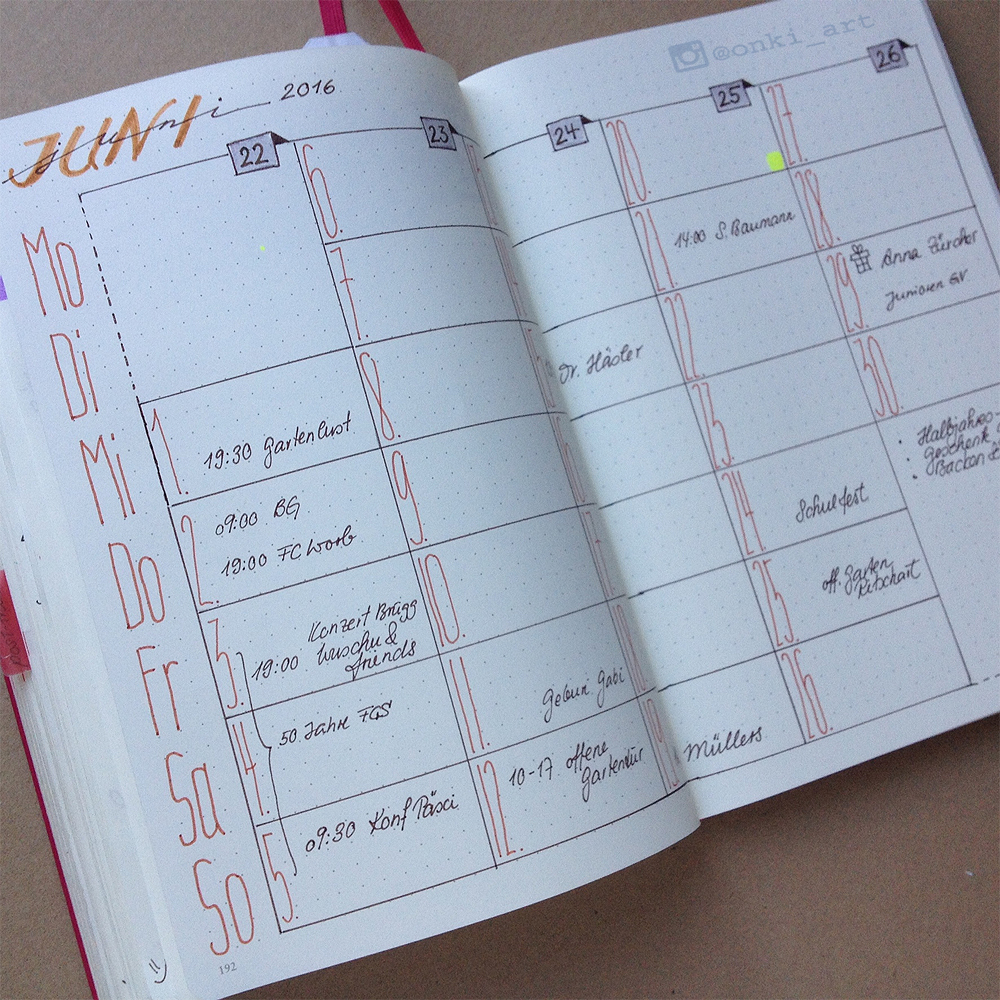 @onki_art
JUNI
juni 2016
22
23
24
25
26
Mo
Di
Mi
Do
Fr
Sa
So
1. 19:30 Gartenlust
2. 09:00 BG
19:00 FC Worb
3. Konzert Brügg
19:00 Wuschu &
friends
4. 50 Jahre FGS
5. 09:30 Konf Päsci
6.
7.
8.
9.
10.
11. Gabi
12. 10-17 offene
Gartentür
Dr. Häsler
Müllers
20.
21. 14:00 S. Baumann
22.
23.
24. Schulfest
25. off. Garten
Ritschart
26.
27.
28.
29. Anna Zürcher
Junioren GV
30.
• Halbjahres
• Geschenk
• Backen
192